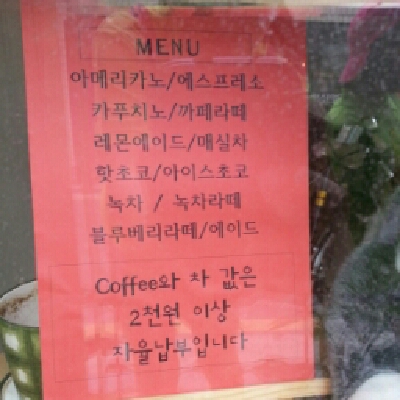 MENU
아메리카노/에스프레소
카푸치노/까페라떼
레몬에이드/매실차
핫초코/아이스초코
녹차 / 녹차라떼
블루베리라떼/에이드
Coffee와 차 값은
2천원 이상
자율납부입니다